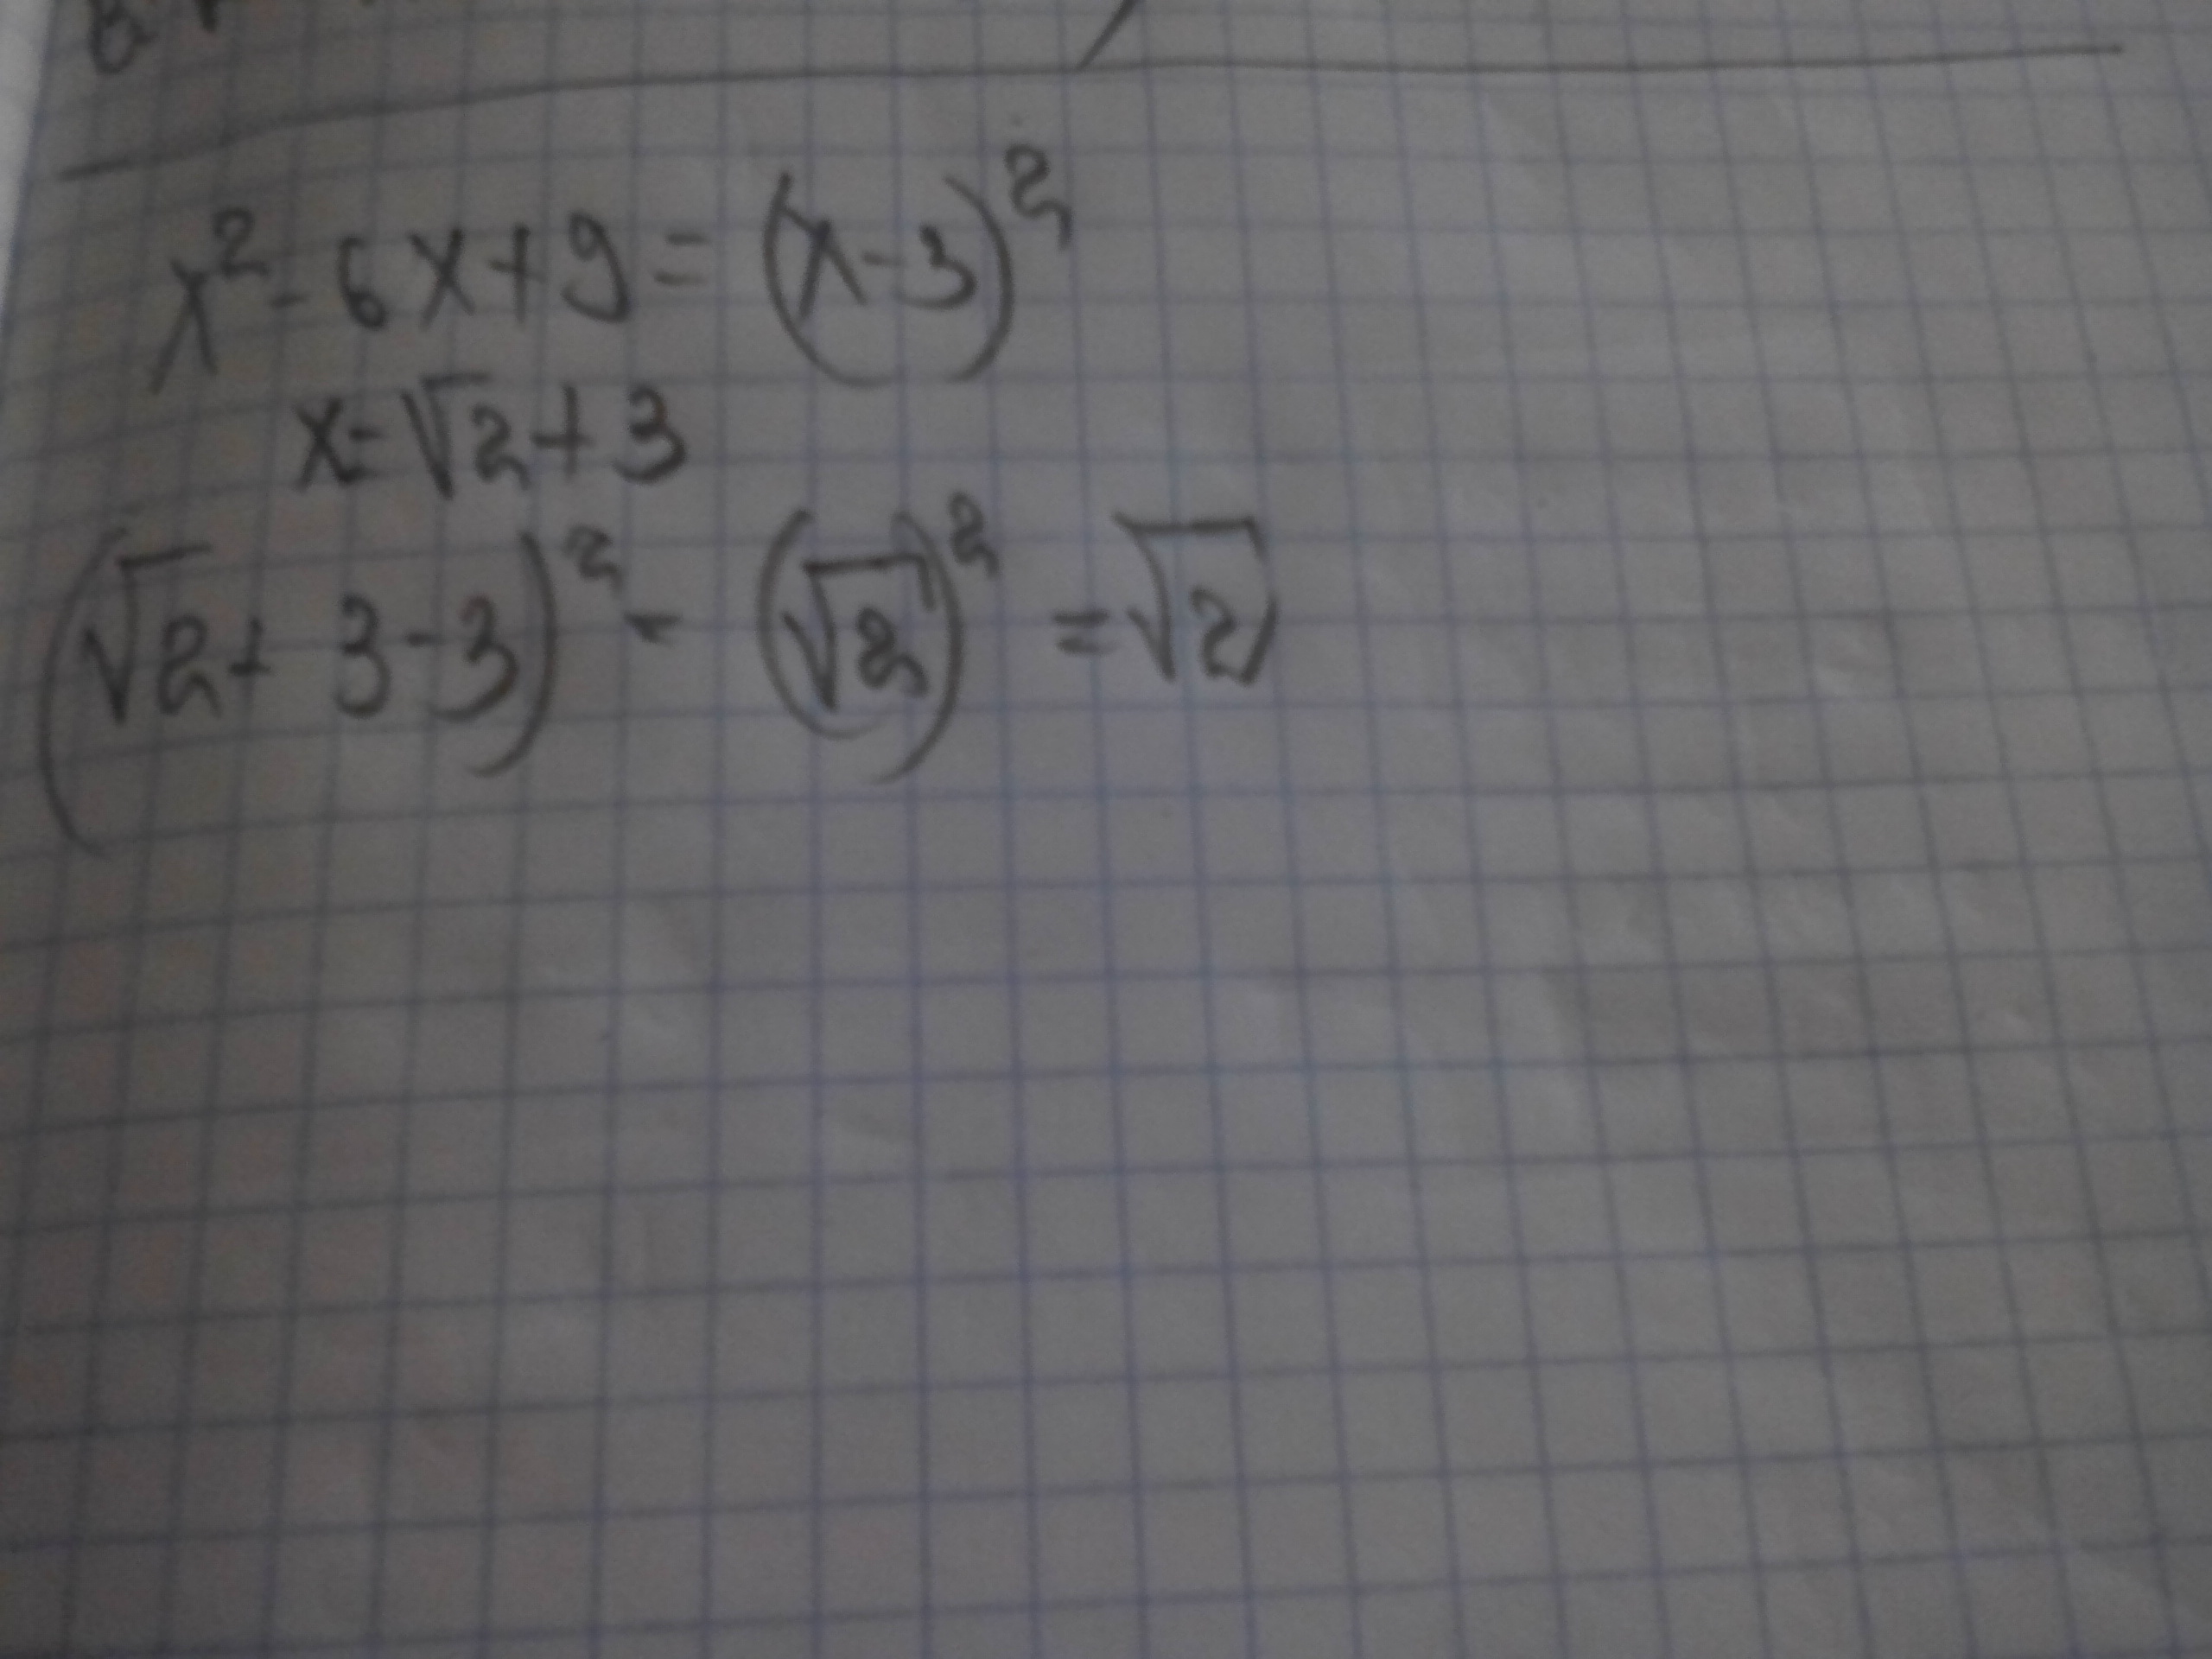 x² - 6x+9 = (x-3)²
x=√2+3
(√2+ 3-3)² - (√2)² =√2